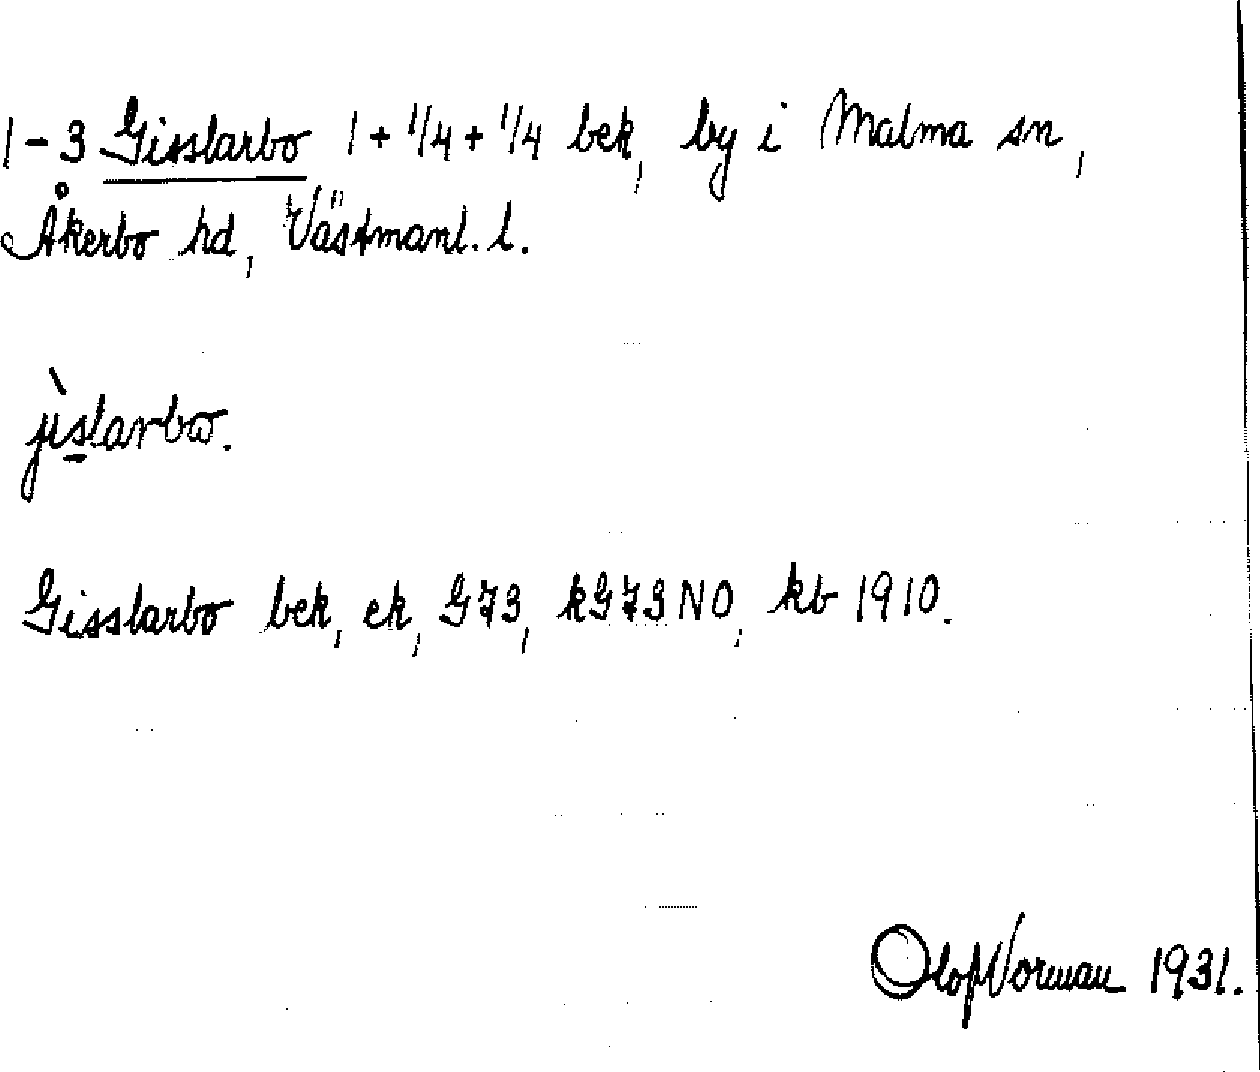 1-3 Gisslarbo 1 + 1/4 + 1/4 bek, by i Malma sn,
Åkerbo hd, Västmanl. l.
jìslarbo.
Gisslarbo bek, ek, G73, kG73NO, kb 1910.
Olof Norman 1931.